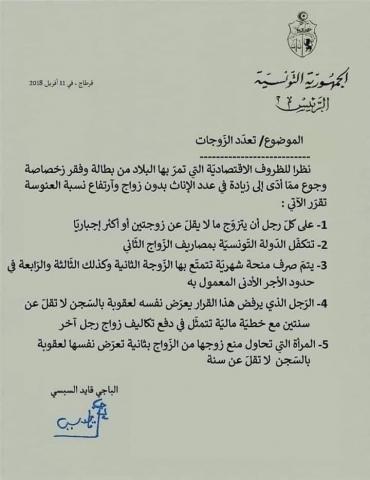 الجمهورية التونسية
الرئيس
قرطاج ، في 11 أفريل 2018
الموضوع/ تعدّد الزّوجات
نظرا للظروف الاقتصاديّة التي تمرّ بها البلاد من بطالة وفقر وخصاصة
وجوع ممّا أدّى إلى زيادة في عدد الإناث بدون زواج وآرتفاع نسبة العنوسة
تقرّر الآتي :
1- على كلّ رجل أن يتزوّج ما لا يقلّ عن زوجتين أو أكثر إجباريّا
2- تتكفّل الدولة التّونسيّة بمصاريف الزّواج الثّاني
3- يتمّ صرف منحة شهريّة تتمتّع بها الزّوجة الثانية وكذلك الثّالثة والرّابعة في
حدود الأجر الأدنى المعمول به
4- الرّجل الذي يرفض هذا القرار يعرّض نفسه لعقوبة بالسّجن لا تقلّ عن
سنتين مع خطيّة ماليّة تتمثّل في دفع تكاليف زواج رجل آخر
5- المرأة التي تحاول منع زوجها من الزّواج بثانية تعرّض نفسها لعقوبة
بالسّجن لا تقلّ عن سنة
الباجي قايد السبسي